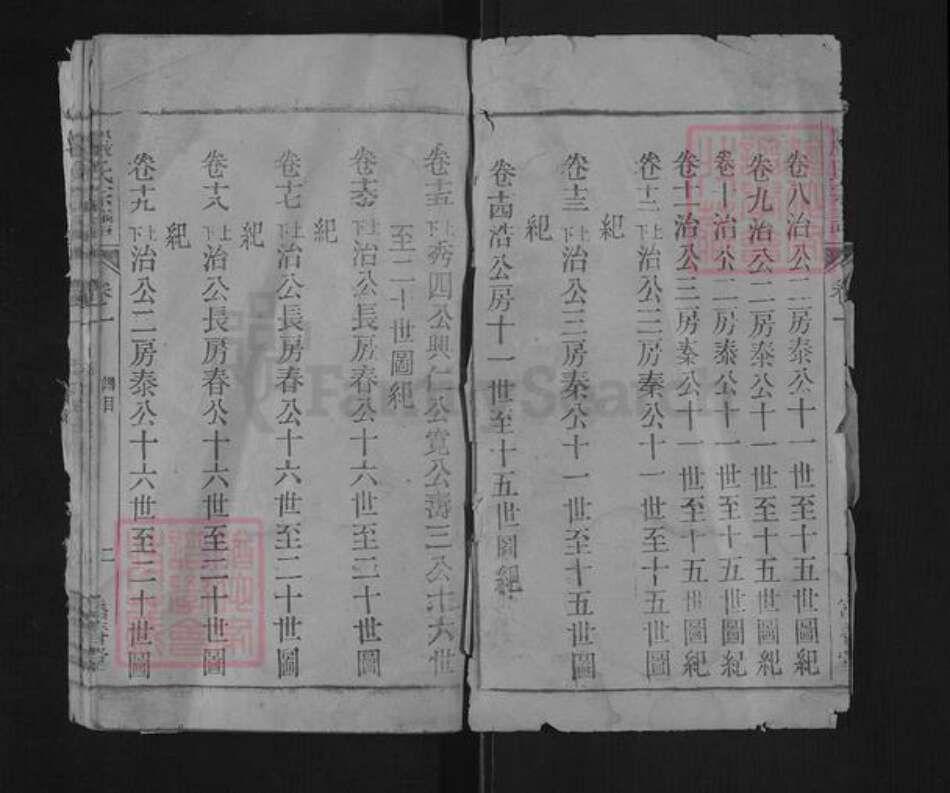 卷八治公二房泰公十一世至十五世圖紀
卷九治公二房泰公十一世至十五世圖紀
卷十治公二房泰公十一世至十五世圖紀
卷十一治公三房秦公十一世至十五世圖紀
卷十二上下治公三房秦公十一世至十五世圖
紀
卷十三上下治公三房秦公十一世至十五世圖
紀
卷十四浩公房十一世至十五世圖紀
卷十五上下秀四公興仁公寬公壽三公十六世
至二十世圖紀
卷十六上下治公長房春公十六世至二十世圖
卷十七上下治公長房春公十六世至二十世圖
紀
卷十八上下治公長房春公十六世至二十世圖
紀
卷十九上下治公二房泰公十六世至二十世圖
紀
氏宗譜
卷一
二
FamilySearch